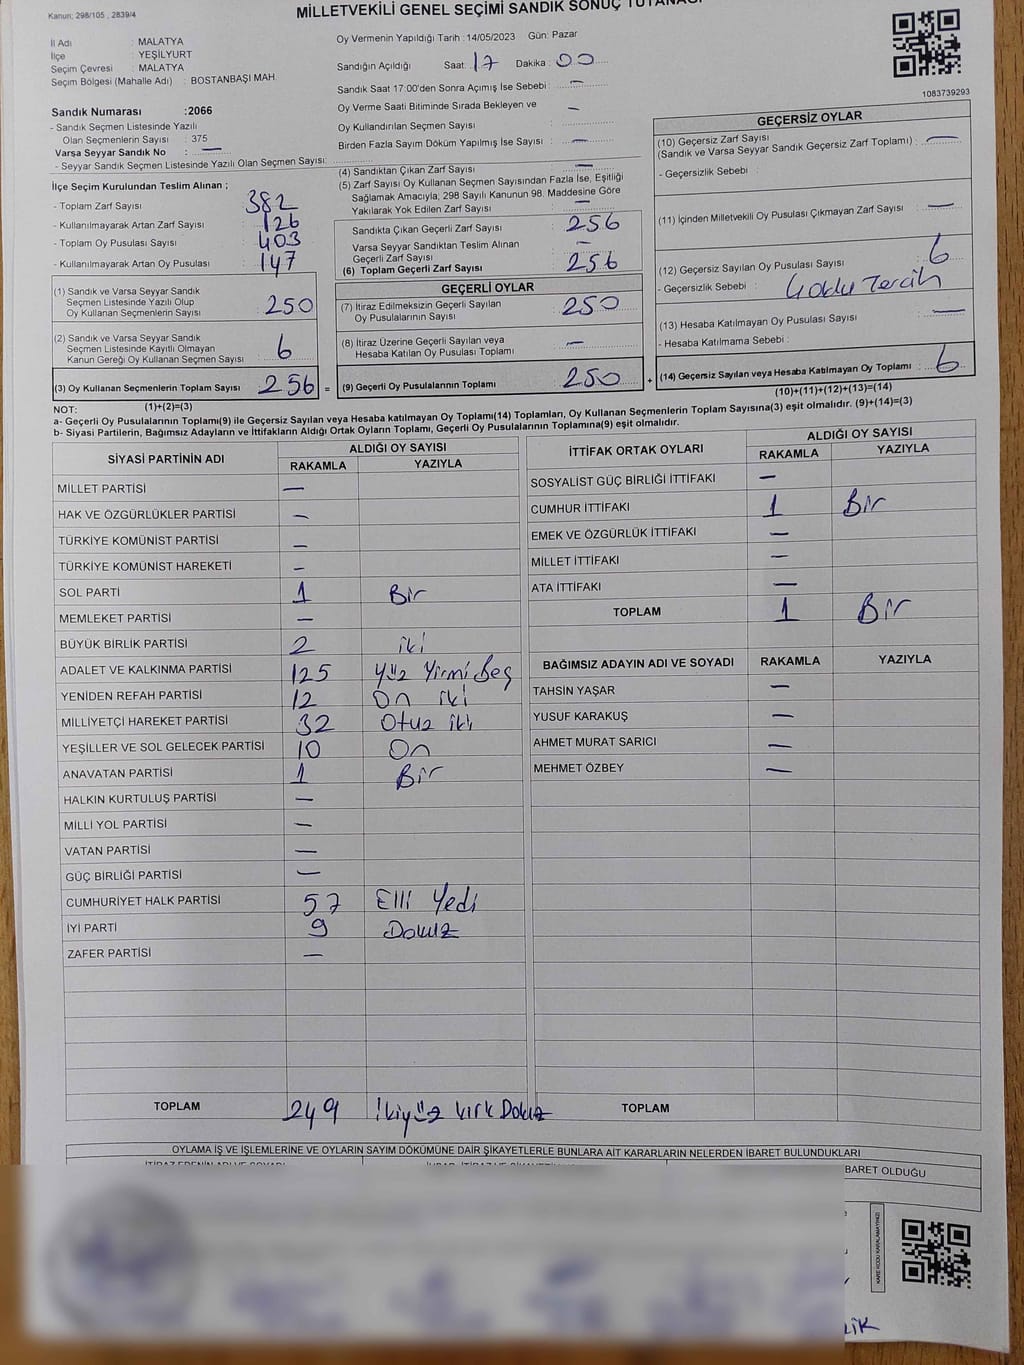 Kanun; 298/105 , 2839/4
MİLLETVEKİLİ GENEL SEÇİMİ SANDIK SONUÇ TUTANAĞI
İl Adı : MALATYA
İlçe : YEŞİLYURT
Seçim Çevresi : MALATYA
Seçim Bölgesi (Mahalle Adı) : BOSTANBAŞI MAH.
Sandık Numarası :2066
- Sandık Seçmen Listesinde Yazılı
Olan Seçmenlerin Sayısı : 375
Varsa Seyyar Sandık No : —
- Seyyar Sandık Seçmen Listesinde Yazılı Olan Seçmen Sayısı:
Oy Vermenin Yapıldığı Tarih :14/05/2023 Gün: Pazar
Sandığın Açıldığı Saat: 17 Dakika : 00
Sandık Saat 17:00'den Sonra Açımış İse Sebebi : —
Oy Verme Saati Bitiminde Sırada Bekleyen ve —
Oy Kullandırılan Seçmen Sayısı :
Birden Fazla Sayım Döküm Yapılmış İse Sayısı : —
1083739293
İlçe Seçim Kurulundan Teslim Alınan ;
- Toplam Zarf Sayısı 382
- Kullanılmayarak Artan Zarf Sayısı 126
- Toplam Oy Pusulası Sayısı 403
- Kullanılmayarak Artan Oy Pusulası : 147
(1) Sandık ve Varsa Seyyar Sandık
Seçmen Listesinde Yazılı Olup
Oy Kullanan Seçmenlerin Sayısı : 250
(2) Sandık ve Varsa Seyyar Sandık
Seçmen Listesinde Kayıtlı Olmayan
Kanun Gereği Oy Kullanan Seçmen Sayısı : 6
(3) Oy Kullanan Seçmenlerin Toplam Sayısı : 256 =
(1)+(2)=(3)
(4) Sandıktan Çıkan Zarf Sayısı : —
(5) Zarf Sayısı Oy Kullanan Seçmen Sayısından Fazla İse, Eşitliği
Sağlamak Amacıyla, 298 Sayılı Kanunun 98. Maddesine Göre
Yakılarak Yok Edilen Zarf Sayısı : —
Sandıkta Çıkan Geçerli Zarf Sayısı : 256
Varsa Seyyar Sandıktan Teslim Alınan
Geçerli Zarf Sayısı : —
(6) Toplam Geçerli Zarf Sayısı : 256
GEÇERLİ OYLAR
(7) İtiraz Edilmeksizin Geçerli Sayılan
Oy Pusulalarının Sayısı : 250
(8) İtiraz Üzerine Geçerli Sayılan veya
Hesaba Katılan Oy Pusulası Toplamı : —
(9) Geçerli Oy Pusulalarının Toplamı : 250 +
GEÇERSİZ OYLAR
(10) Geçersiz Zarf Sayısı
(Sandık ve Varsa Seyyar Sandık Geçersiz Zarf Toplamı) : —
- Geçersizlik Sebebi :
(11) İçinden Milletvekili Oy Pusulası Çıkmayan Zarf Sayısı : —
(12) Geçersiz Sayılan Oy Pusulası Sayısı : 6
- Geçersizlik Sebebi : Çoklu Tercih
(13) Hesaba Katılmayan Oy Pusulası Sayısı : —
- Hesaba Katılmama Sebebi :
(14) Geçersiz Sayılan veya Hesaba Katılmayan Oy Toplamı : 6
(10)+(11)+(12)+(13)=(14)
NOT:
a- Geçerli Oy Pusulalarının Toplamı(9) ile Geçersiz Sayılan veya Hesaba katılmayan Oy Toplamı(14) Toplamları, Oy Kullanan Seçmenlerin Toplam Sayısına(3) eşit olmalıdır. (9)+(14)=(3)
b- Siyasi Partilerin, Bağımsız Adayların ve İttifakların Aldığı Ortak Oyların Toplamı, Geçerli Oy Pusulalarının Toplamına(9) eşit olmalıdır.
SİYASİ PARTİNİN ADI ALDIĞI OY SAYISI
RAKAMLA YAZIYLA
MİLLET PARTİSİ —
HAK VE ÖZGÜRLÜKLER PARTİSİ —
TÜRKİYE KOMÜNİST PARTİSİ —
TÜRKİYE KOMÜNİST HAREKETİ —
SOL PARTİ 1 Bir
MEMLEKET PARTİSİ —
BÜYÜK BİRLİK PARTİSİ 2 iki
ADALET VE KALKINMA PARTİSİ 125 Yüz Yirmi Beş
YENİDEN REFAH PARTİSİ 12 On iki
MİLLİYETÇİ HAREKET PARTİSİ 32 Otuz iki
YEŞİLLER VE SOL GELECEK PARTİSİ 10 On
ANAVATAN PARTİSİ 1 Bir
HALKIN KURTULUŞ PARTİSİ —
MİLLİ YOL PARTİSİ —
VATAN PARTİSİ —
GÜÇ BİRLİĞİ PARTİSİ —
CUMHURİYET HALK PARTİSİ 57 Elli Yedi
İYİ PARTİ 9 Dokuz
ZAFER PARTİSİ —
TOPLAM 249 İkiyüz kırk Dokuz
İTTİFAK ORTAK OYLARI ALDIĞI OY SAYISI
RAKAMLA YAZIYLA
SOSYALİST GÜÇ BİRLİĞİ İTTİFAKI —
CUMHUR İTTİFAKI 1 Bir
EMEK VE ÖZGÜRLÜK İTTİFAKI —
MİLLET İTTİFAKI —
ATA İTTİFAKI —
TOPLAM 1 Bir
BAĞIMSIZ ADAYIN ADI VE SOYADI RAKAMLA YAZIYLA
TAHSİN YAŞAR —
YUSUF KARAKUŞ —
AHMET MURAT SARICI —
MEHMET ÖZBEY —
TOPLAM
OYLAMA İŞ VE İŞLEMLERİNE VE OYLARIN SAYIM DÖKÜMÜNE DAİR ŞİKAYETLERLE BUNLARA AİT KARARLARIN NELERDEN İBARET BULUNDUKLARI
BARET OLDUĞU
KARE KODU KARALAMAYINIZ!